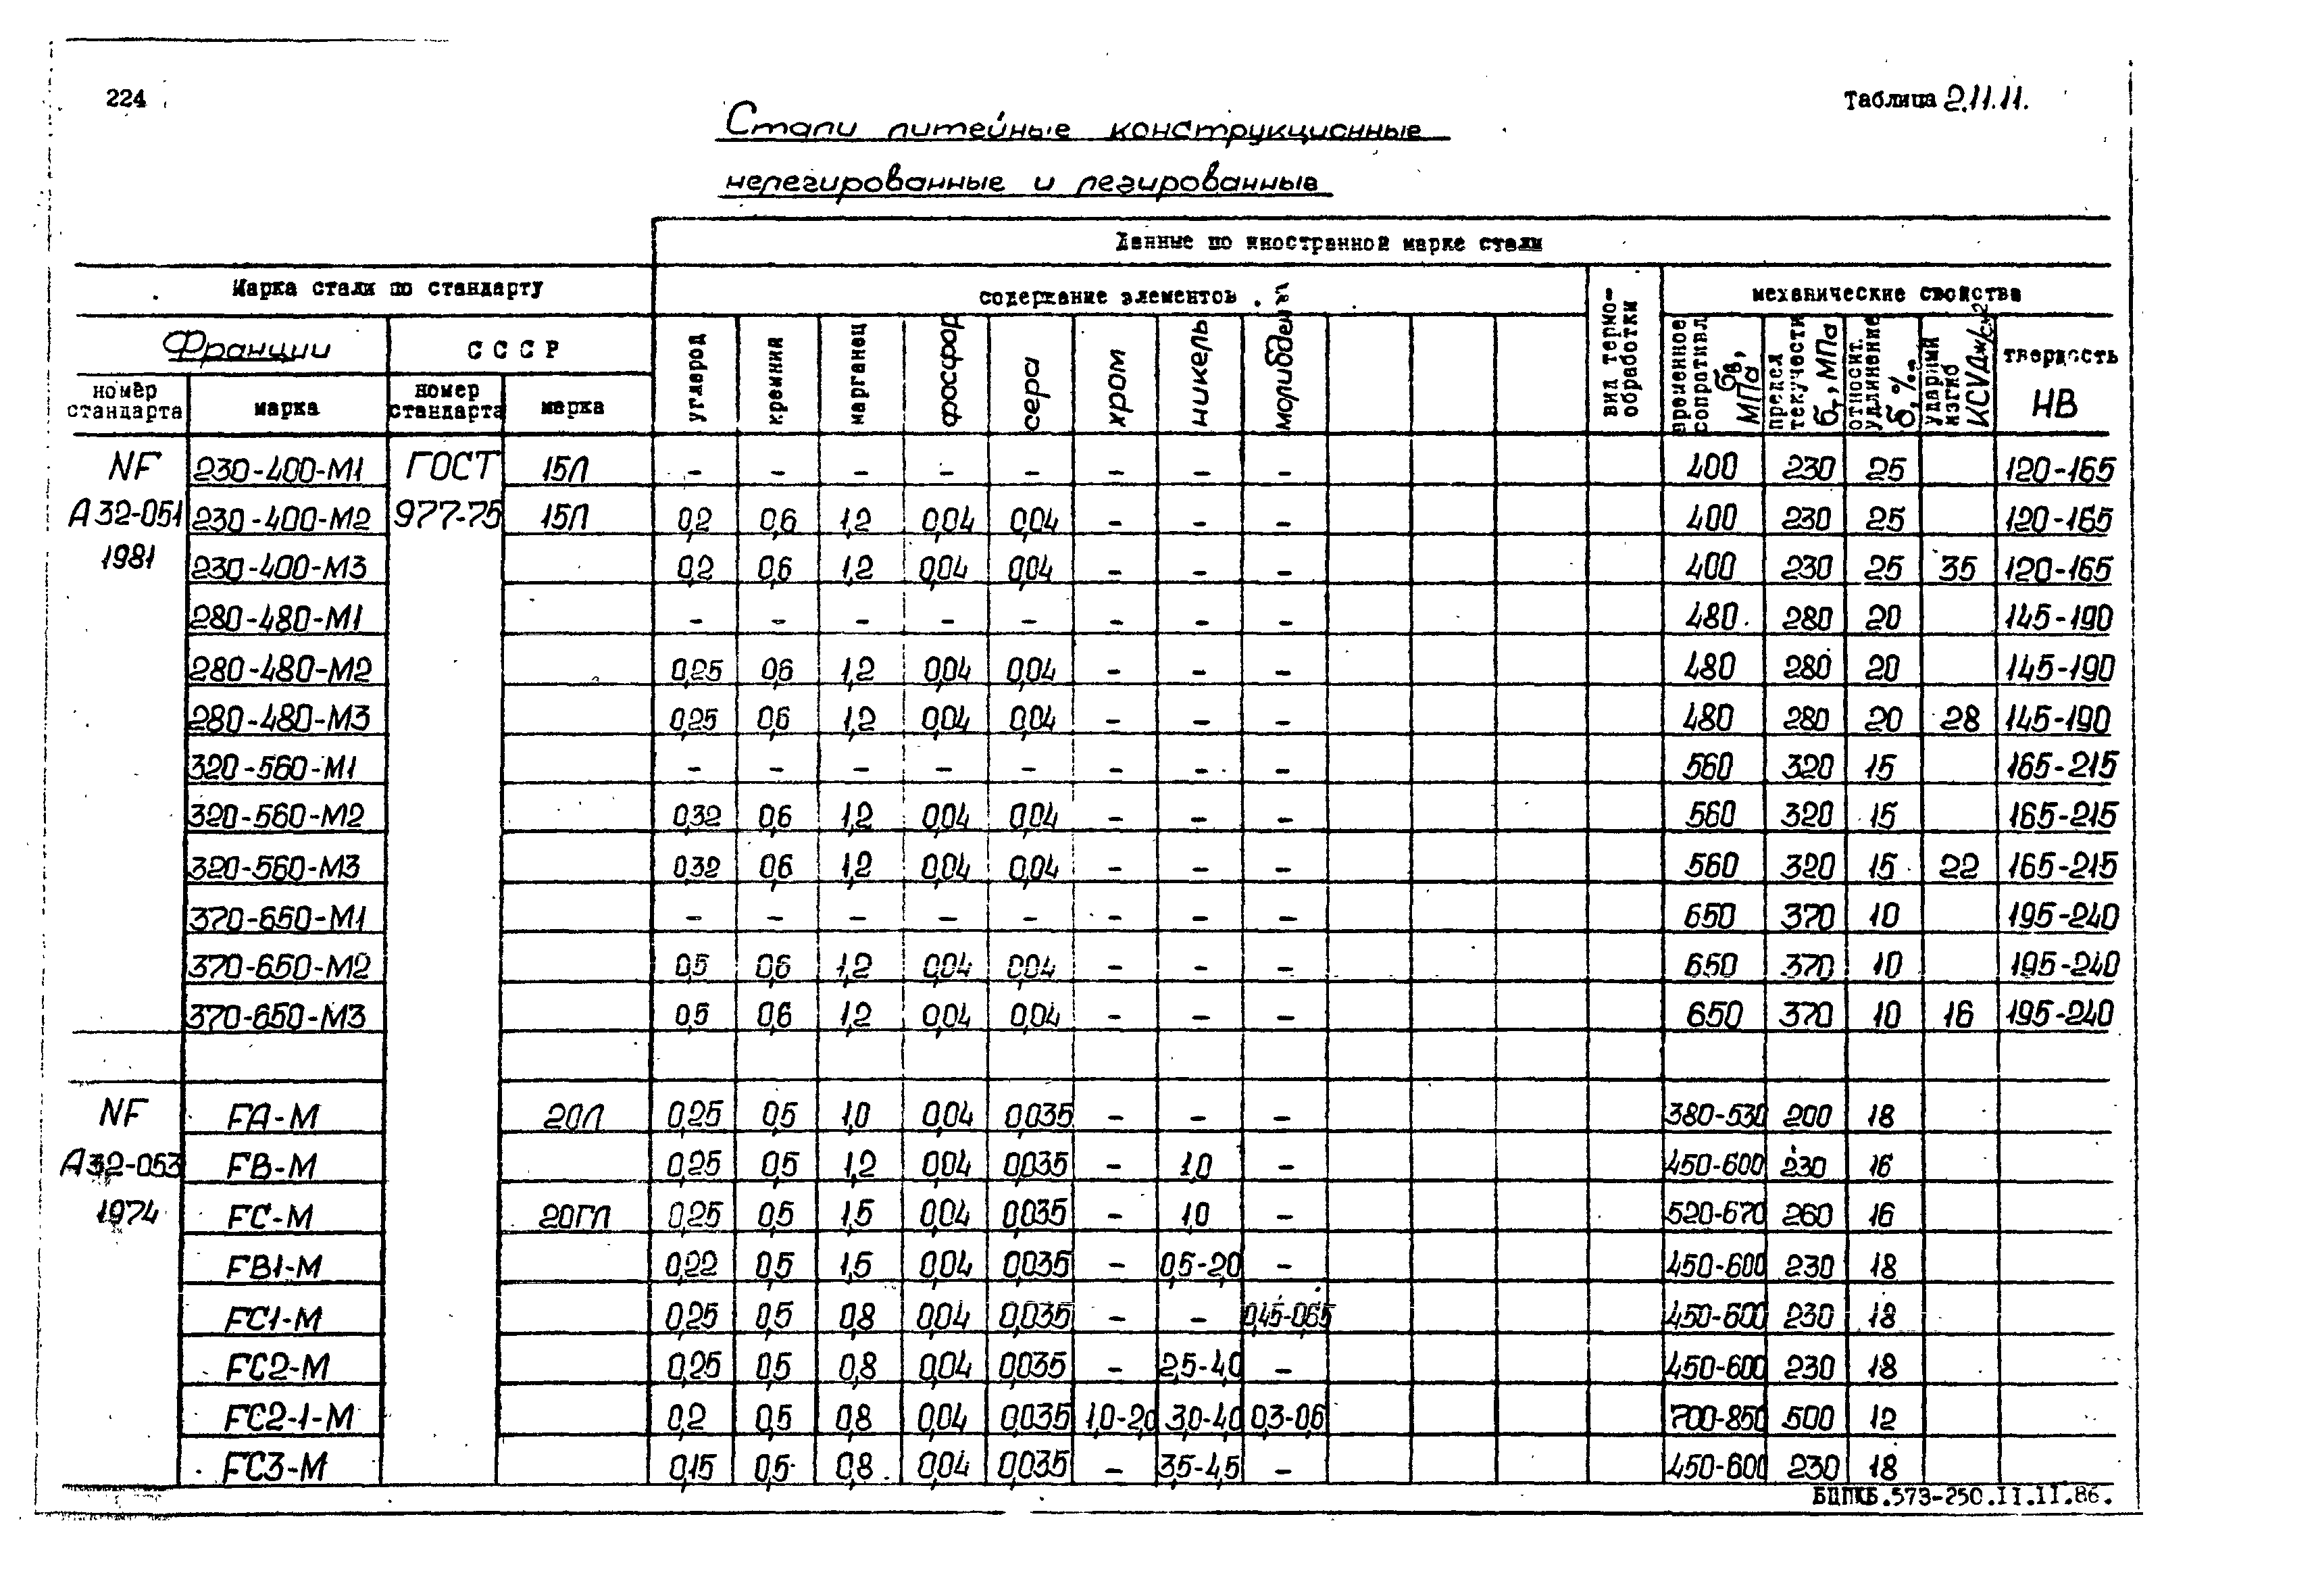 224
Таблица 2.11.11.
Стали литейные конструкционные
нелегированные и легированные
Данные по иностранной марке стали
Марка стали по стандарту
содержание элементов, %
вид термо-
обработки
механические свойства
Франции
СССР
углерод
кремний
марганец
фосфор
сера
хром
никель
молибден
временное
сопротивл.
σв,
МПа
предел
текучести
σт, МПа
относит.
удлинение
δ, %
ударный
изгиб
KCVДж/см²
твердость
HB
номер
стандарта
марка
номер
стандарта
марка
NF 230-400-М1 ГОСТ 15Л – – – – – – – – 400 230 25 120-165
А32-051 230-400-М2 977-75 15Л 0,2 0,6 1,2 0,04 0,04 – – – 400 230 25 120-165
1981 230-400-М3 0,2 0,6 1,2 0,04 0,04 – – – 400 230 25 35 120-165
280-480-М1 – – – – – – – – 480 280 20 145-190
280-480-М2 0,25 0,6 1,2 0,04 0,04 – – – 480 280 20 145-190
280-480-М3 0,25 0,6 1,2 0,04 0,04 – – – 480 280 20 28 145-190
320-560-М1 – – – – – – – – 560 320 15 165-215
320-560-М2 0,32 0,6 1,2 0,04 0,04 – – – 560 320 15 165-215
320-560-М3 0,32 0,6 1,2 0,04 0,04 – – – 560 320 15 22 165-215
370-650-М1 – – – – – – – – 650 370 10 195-240
370-650-М2 0,5 0,6 1,2 0,04 0,04 – – – 650 370 10 195-240
370-650-М3 0,5 0,6 1,2 0,04 0,04 – – – 650 370 10 16 195-240
NF FA-M 20Л 0,25 0,5 1,0 0,04 0,035 – – – 380-530 200 18
А32-053 FB-M 0,25 0,5 1,2 0,04 0,035 – 1,0 – 450-600 230 16
1974 FC-M 20ГЛ 0,25 0,5 1,5 0,04 0,035 – 1,0 – 520-670 260 16
FB1-M 0,22 0,5 1,5 0,04 0,035 – 0,5-2,0 – 450-600 230 18
FC1-M 0,25 0,5 0,8 0,04 0,035 – – 0,45-0,65 450-600 230 18
FC2-M 0,25 0,5 0,8 0,04 0,035 – 2,5-4,0 – 450-600 230 18
FC2-1-M 0,2 0,5 0,8 0,04 0,035 1,0-2,0 3,0-4,0 0,3-0,6 700-850 500 12
FC3-M 0,15 0,5 0,8 0,04 0,035 – 3,5-4,5 – 450-600 230 18
БЦПКБ.573-250.II.II.86.